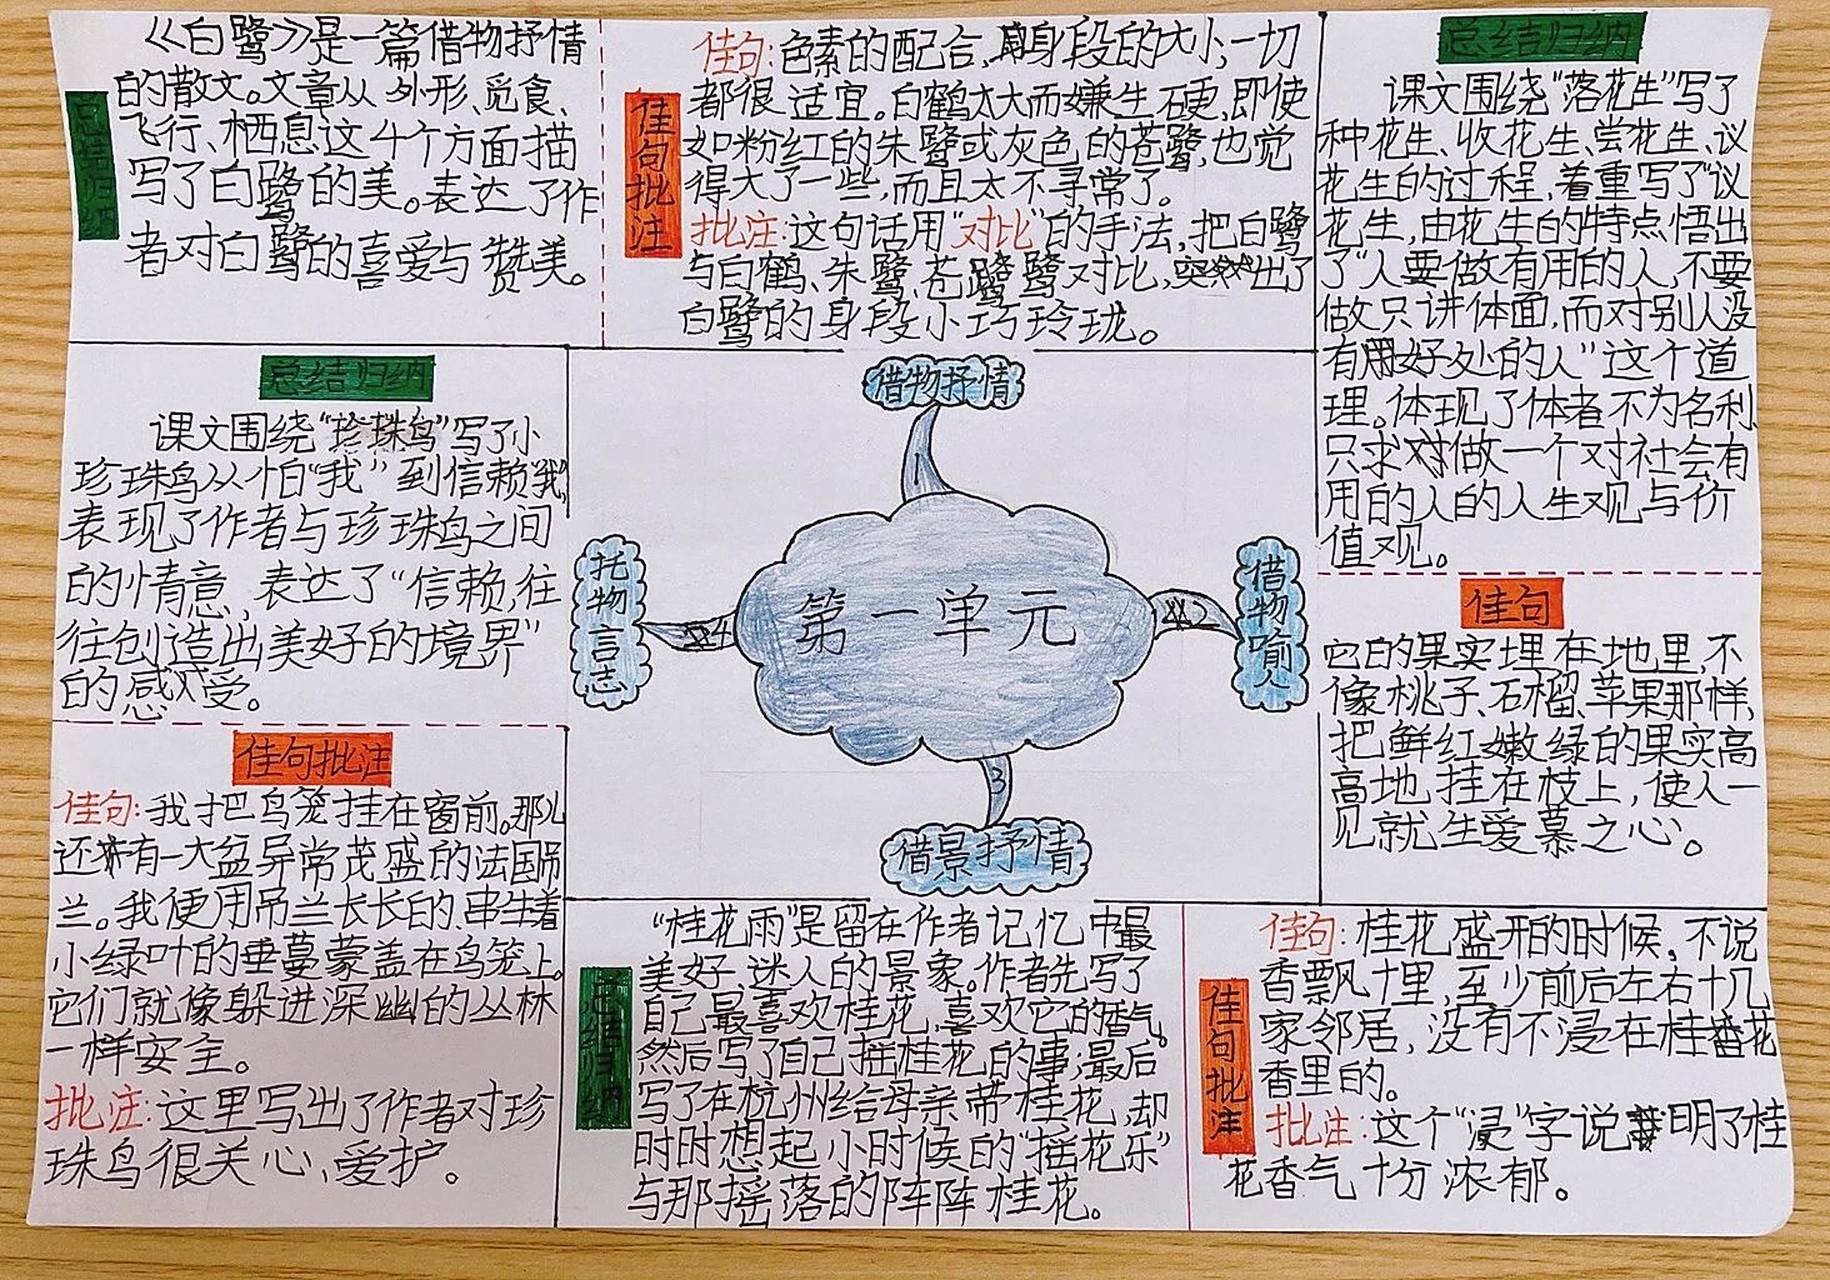 总结归纳
《白鹭》是一篇借物抒情
的散文。文章从外形、觅食、
飞行、栖息这4个方面描
写了白鹭的美。表达了作
者对白鹭的喜爱与赞美。
佳句批注
佳句:色素的配合,身段的大小,一切
都很适宜。白鹤太大而嫌生硬,即使
如粉红的朱鹭或灰色的苍鹭,也觉
得大了一些,而且太不寻常了。
批注:这句话用“对比”的手法,把白鹭
与白鹤、朱鹭、苍鹭对比,突出了
白鹭的身段小巧玲珑。
总结归纳
课文围绕“落花生”写了
种花生、收花生、尝花生、议
花生的过程,着重写了“议
花生,由花生的特点悟出
了“人要做有用的人,不要
做只讲体面,而对别人没
有好处的人”这个道
理。体现了体者不为名利,
只求做一个对社会有
用的人的人生观与价
值观。
佳句
它的果实埋在地里,不
像桃子、石榴、苹果那样,
把鲜红嫩绿的果实高
高地挂在枝上,使人一
见就生爱慕之心。
总结归纳
课文围绕“珍珠鸟”写了小
珍珠鸟从怕“我”到信赖“我”,
表现了作者与珍珠鸟之间
的情意,表达了“信赖,往
往创造出美好的境界”
的感受。
佳句批注
佳句:我把鸟笼挂在窗前。那儿
还有一大盆异常茂盛的法国吊
兰。我便用吊兰长长的、串生着
小绿叶的垂蔓蒙盖在鸟笼上。
它们就像躲进深幽的丛林
一样安全。
批注:这里写出了作者对珍
珠鸟很关心、爱护。
借物抒情
1
第一单元
2
借物喻人
3
借景抒情
4
托物言志
总结归纳
“桂花雨”是留在作者记忆中最
美好、迷人的景象。作者先写了
自己最喜欢桂花,喜欢它的香气。
然后写了自己摇桂花的事;最后
写了在杭州给母亲带桂花,却
时时想起小时候的“摇花乐”
与那摇落的阵阵桂花。
佳句批注
佳句:桂花盛开的时候,不说
香飘十里,至少前后左右十几
家邻居,没有不浸在桂花
香里的。
批注:这个“浸”字说明了桂
花香气十分浓郁。